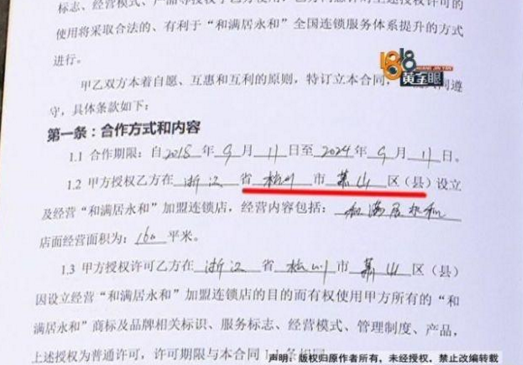 标志、经营模式、产品等授权于乙方使用
使用将采取合法的、有利于“和满居永和”全国连锁服务体系提升的方式
进行。
1818
黄金眼
甲乙双方本着自愿、互惠和互利的原则，特订立本合同，
守，具体条款如下：
第一条：合作方式和内容
1.1 合作期限：自2018年9月11日至2024年9月11日。
1.2 甲方授权乙方在浙江省杭州市萧山区（县）设立
及经营“和满居永和”加盟连锁店，经营内容包括：和满居永和
店面经营面积为：160平米。
1.3 甲方授权许可乙方在浙江省杭州市萧山区（县）
因设立经营“和满居永和”加盟连锁店的目的而有权使用甲方所有的“和
满居永和”商标及品牌相关标识、服务标志、经营模式、管理制度、产品，
上述授权为普通许可，许可期限与本合同1.1条相同
声明：版权归原作者所有，未经授权，禁止改编转载